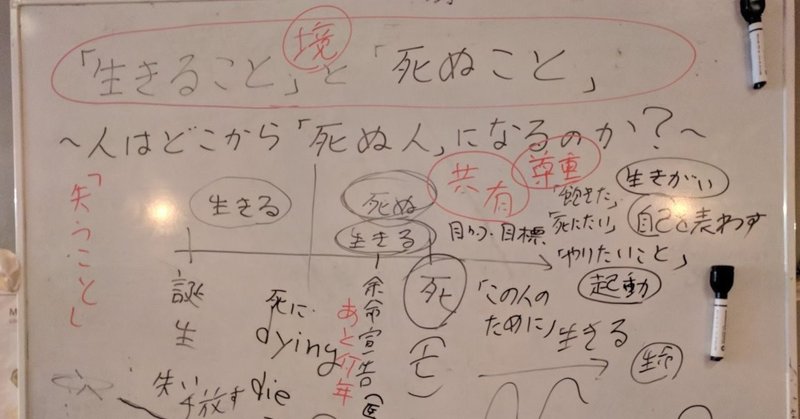 境
「生きること」と「死ぬこと」
～人はどこから「死ぬ人」になるのか？～
「失うこと」
生きる
死ぬ
生きる
共有
尊重
「飽きた」
生きがい
目的・目標
「死にたい」
自己を表わす
「やりたいこと」
誕生
死に
dying
余命宣告
あと何年
死
「この人の
ために」生きる
起動
失い
手放す
die